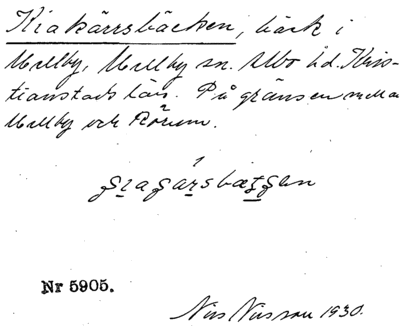 Kiakärrsbäcken, bäck i
Mellby, Mellby sn. Albo hd. Kris-
tianstads län. På gränsen mellan
Mellby och Rörum.
Nr 5905.
Nils Nilsson 1930.